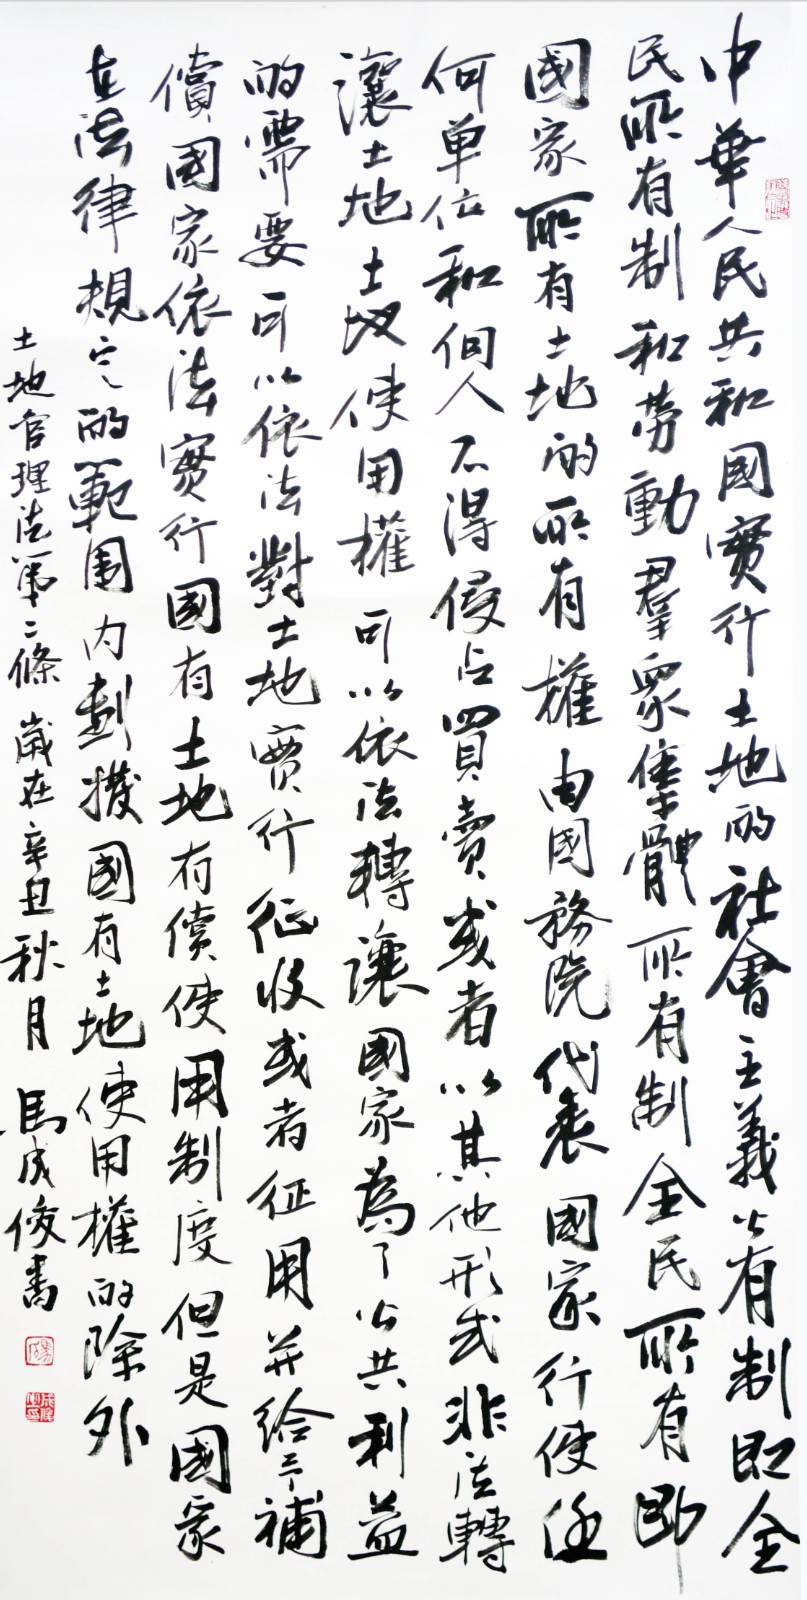 中華人民共和國實行土地的社會主義公有制即全
民所有制和劳動羣眾集體所有制全民所有即
國家所有土地的所有權由國務院代表國家行使任
何单位和個人不得侵占買賣或者以其他形式非法轉
讓土地土地使用權可以依法轉讓國家為了公共利益
的需要可以依法對土地實行征收或者征用并給予補
償國家依法實行國有土地有償使用制度但是國家
在法律規定的範围内劃撥國有土地使用權的除外
土地管理法第二條歲在辛丑秋月馬成俊書